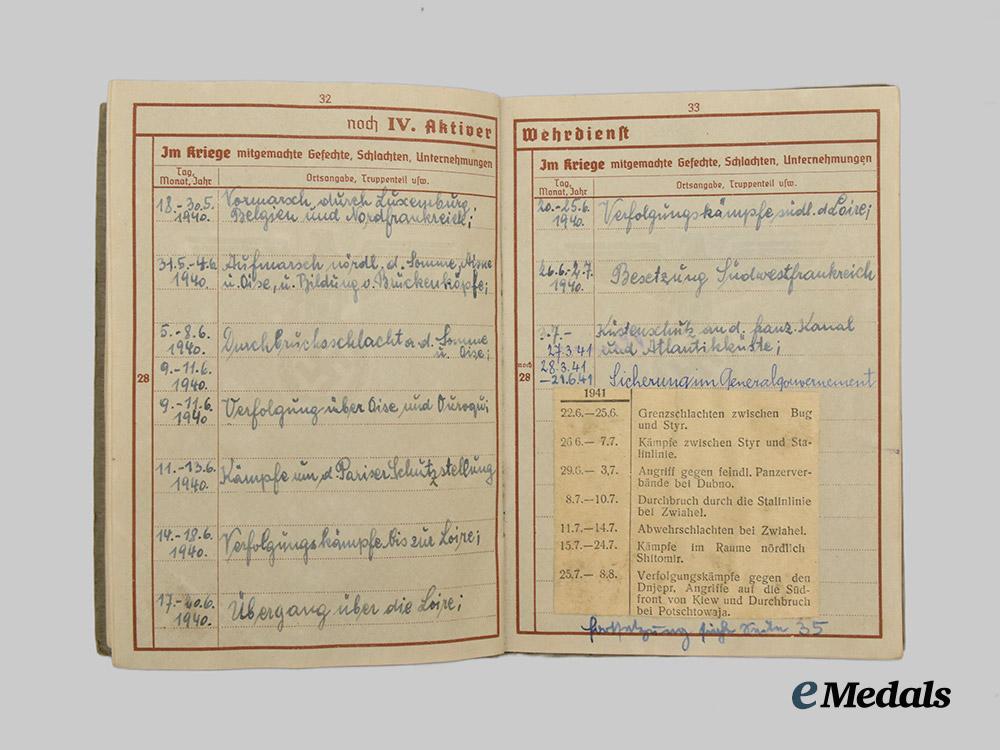 32
noch IV. Aktiver
Im Kriege mitgemachte Gefechte, Schlachten, Unternehmungen
Tag,
Monat, Jahr
Ortsangabe, Truppenteil usw.
28
18.-30.5.
1940.
Vormarsch durch Luxemburg,
Belgien und Nordfrankreich;
31.5.-4.6.
1940.
Aufmarsch nördl. d. Somme, Aisne
u. Oise, u. Bildung v. Brückenköpfe;
5.-8.6.
1940.
9.-11.6.
1940.
Durchbruchsschlacht a. d. Somme
u. Oise;
9.-11.6.
1940
Verfolgung über Oise und Ourcq;
11.-13.6.
1940.
Kämpfe um d. Pariser Schutzstellung
14.-18.6.
1940.
Verfolgungskämpfe bis zur Loire;
17.-20.6.
1940.
Übergang über die Loire;
33
Wehrdienst
Im Kriege mitgemachte Gefechte, Schlachten, Unternehmungen
Tag,
Monat, Jahr
Ortsangabe, Truppenteil usw.
noch
28
20.-25.6.
1940.
Verfolgungskämpfe südl. d. Loire;
26.6.-2.7.
1940.
Besetzung Südwestfrankreich
3.7.-
27.3.41
Küstenschutz an d. franz. Kanal
und Atlantikküste;
28.3.41
-21.6.41
Sicherung im Generalgouvernement
1941
22.6.—25.6. Grenzschlachten zwischen Bug
und Styr.
26 6.— 7.7. Kämpfe zwischen Styr und Sta-
linlinie.
29.6.— 3.7. Angriff gegen feindl. Panzerver-
bände bei Dubno.
8.7.—10.7. Durchbruch durch die Stalinlinie
bei Zwiahel.
11.7.—14.7. Abwehrschlachten bei Zwiahel.
15.7.—24.7. Kämpfe im Raume nördlich
Shitomir.
25.7.— 8.8. Verfolgungskämpfe gegen den
Dnjepr. Angriffe auf die Süd-
front von Kiew und Durchbruch
bei Potschtowaja.
Fortsetzung siehe Seite 35
eMedals